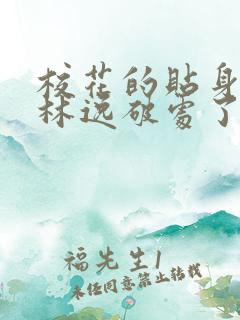 校花的贴身
林逸破处了
福先生1
未任同意禁止转载